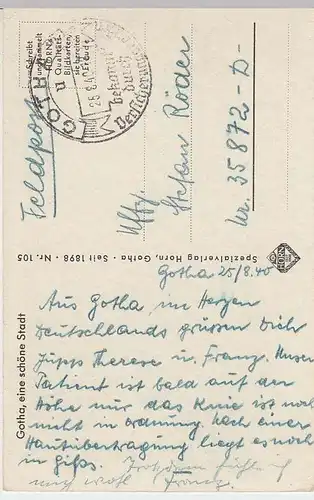 Schreibt
und sammelt
HORN'S
Qualitäts-
Bildkarten,
sie bereiten
Freude
GOTHA
bekannt
durch
Versicherung
Feldpost
Uffz.
Stefan Röder
Nr. 35872-D-
HORN
Spezialverlag Horn, Gotha - Seit 1898 - Nr. 105
Gotha, eine schöne Stadt
Gotha 25/8.40
Aus Gotha, im Herzen
Deutschlands grüssen Dich
Jupps Therese u. Franz. Unser
Patient ist bald auf der
Höhe nur das Knie ist noch
nicht in Ordnung. Nach einer
Hautübertragung liegt es noch
in Gips. Trotzdem fühle ich
mich wohl Franz.